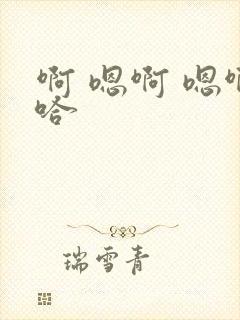 啊 嗯啊 嗯啊
哈
瑞雪青